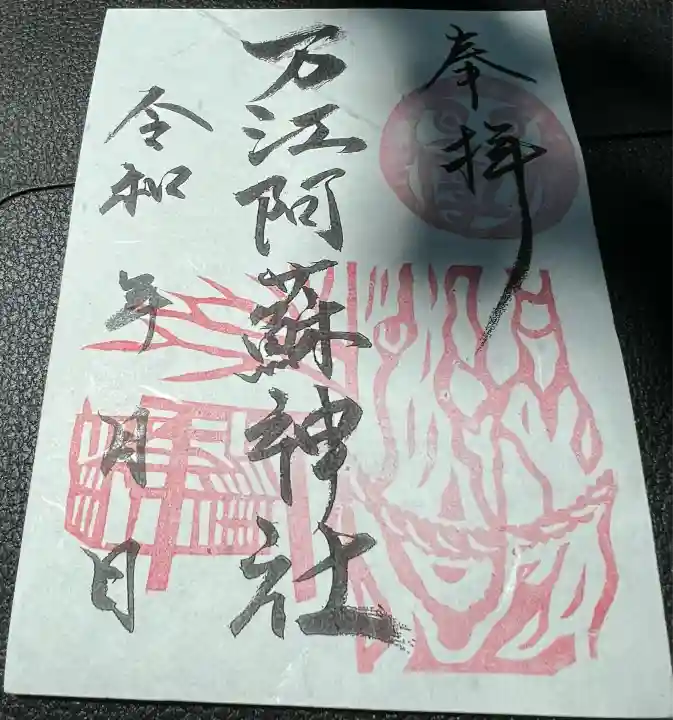 奉拝
万江阿蘇神社
令和 年 月 日